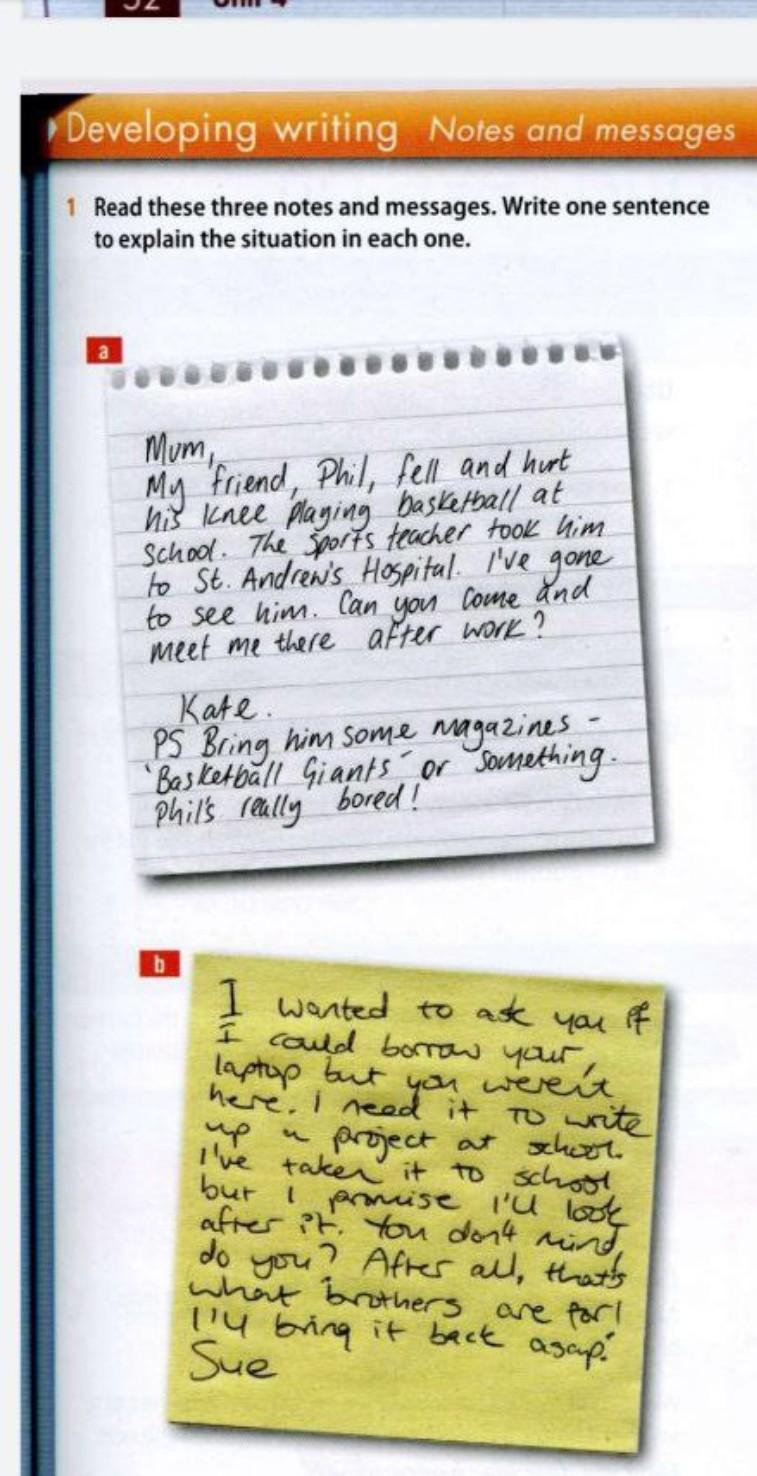 52 Unit 4
Developing writing Notes and messages
1 Read these three notes and messages. Write one sentence
to explain the situation in each one.
a
Mum,
My friend, Phil, fell and hurt
his knee playing basketball at
school. The sports teacher took him
to St. Andrew's Hospital. I've gone
to see him. Can you come and
meet me there after work?
Kate.
PS Bring him some magazines -
'Basketball Giants' or something.
Phil's really bored!
b
I wanted to ask you if
I could borrow your
laptop but you weren't
here. I need it to write
up a project at school.
I've taken it to school
but I promise I'll look
after it. You don't mind,
do you? After all, that's
what brothers are for!
I'll bring it back asap!
Sue